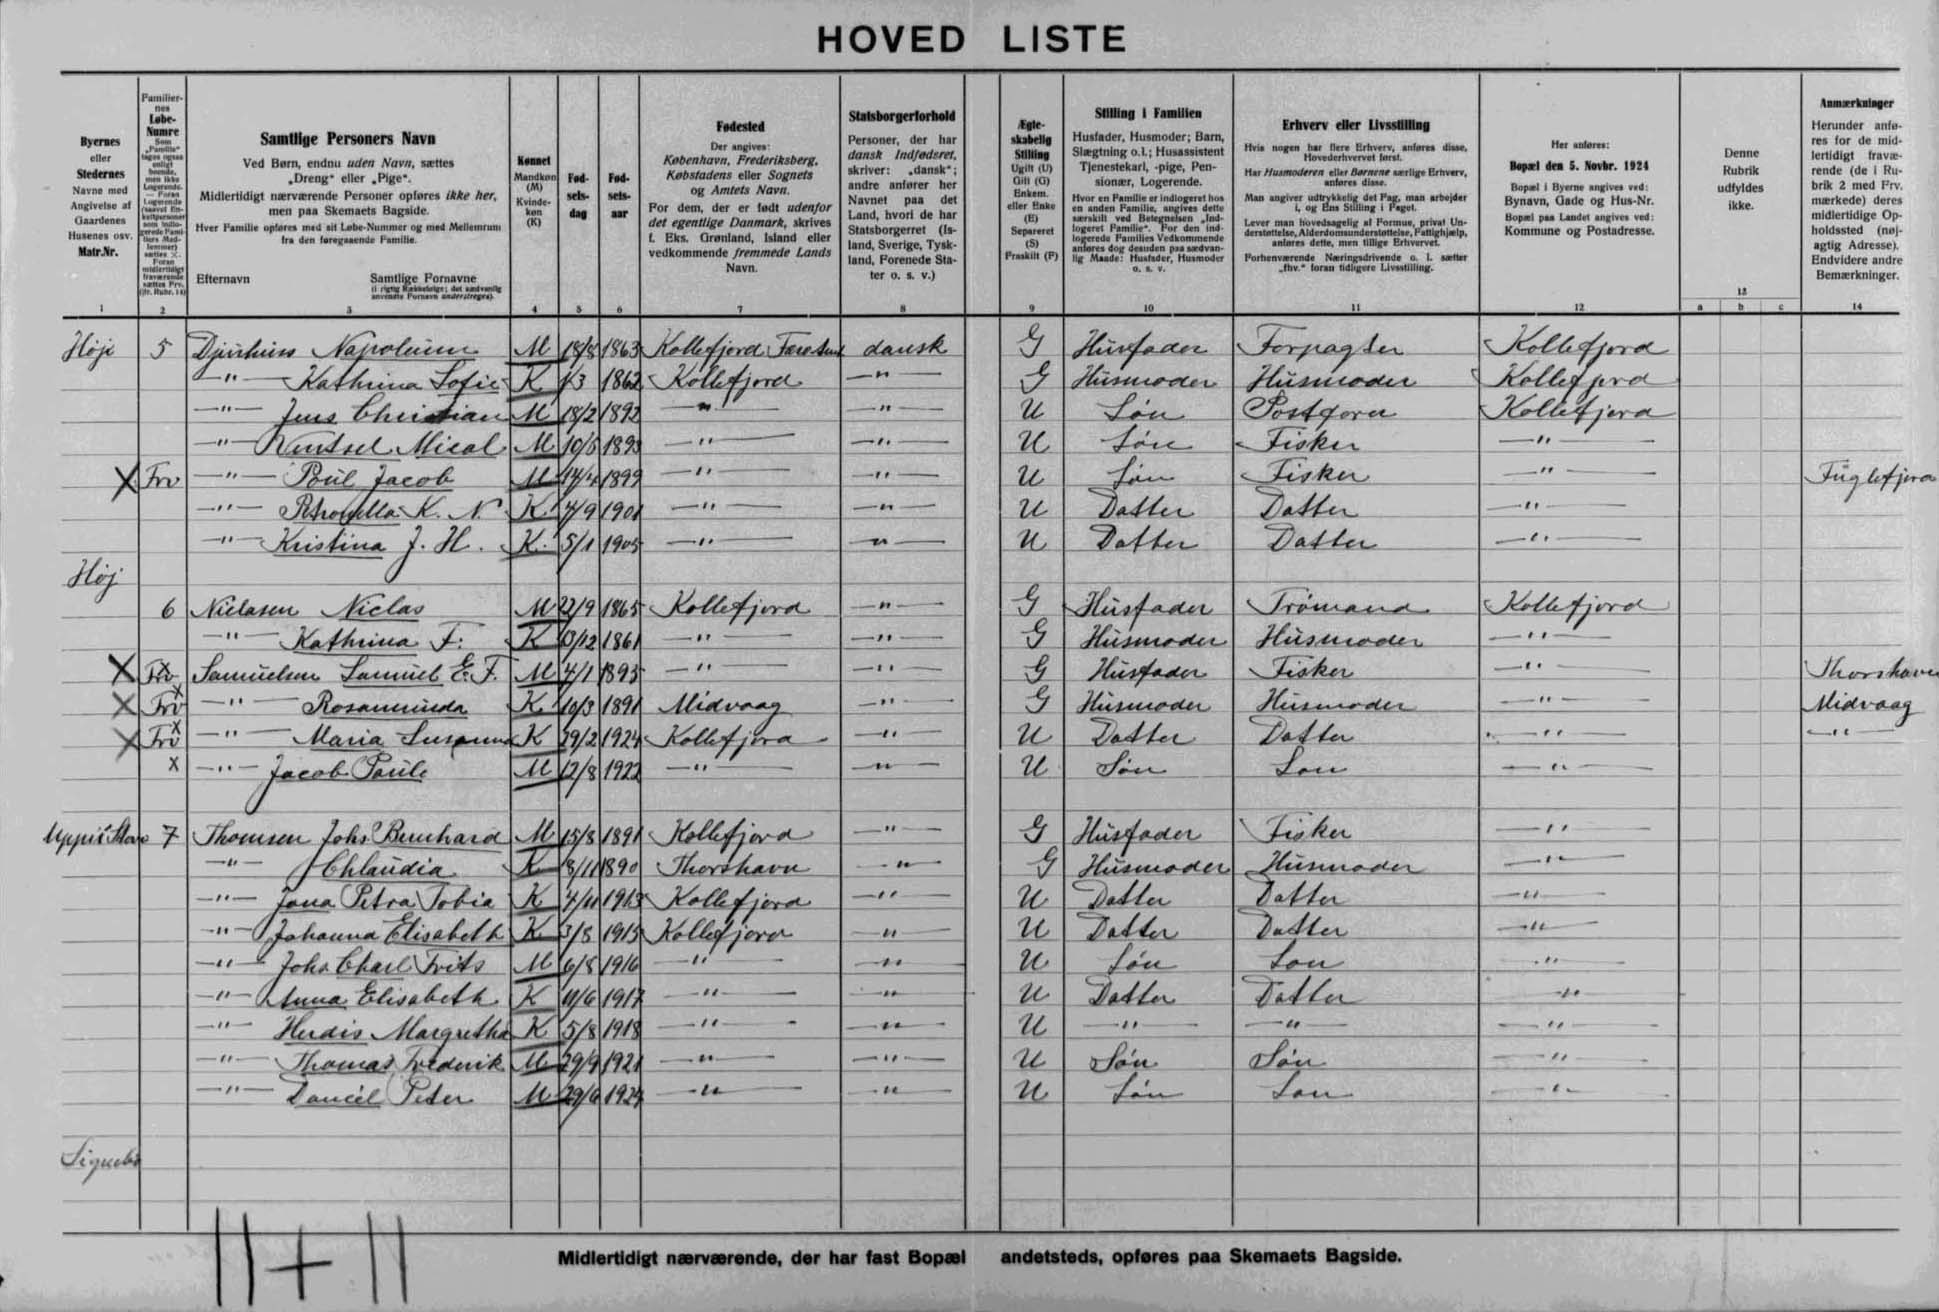 HOVED LISTE
Byernes
eller
Stedernes
Navne med
Angivelse af
Gaardenes
Husenes osv.
Matr.Nr.
Familier-
nes
Løbe-
Numre
Samtlige Personers Navn
Ved Børn, endnu uden Navn, sættes
„Dreng“ eller „Pige“.
Midlertidigt nærværende Personer opføres ikke her,
men paa Skemaets Bagside.
Hver Familie opføres med sit Løbe-Nummer og med Mellemrum
fra den foregaaende Familie.
Efternavn Samtlige Fornavne
(i rigtig Rækkefølge; det sædvanlig
anvendte Fornavn understreges).
Kønnet
Mandkøn
(M)
Kvinde-
køn
(K)
Fød-
sels-
dag
Fød-
sels-
aar
Fødested
Der angives:
København, Frederiksberg,
Købstadens eller Sognets
og Amtets Navn.
For dem, der er født udenfor
det egentlige Danmark, skrives
f. Eks. Grønland, Island eller
vedkommende fremmede Lands
Navn.
Statsborgerforhold
Personer, der har
dansk Indfødsret,
skriver: „dansk“;
andre anfører her
Navnet paa det
Land, hvori de har
Statsborgerret (Is-
land, Sverige, Tysk-
land, Forenede Sta-
ter o. s. v.)
Ægte-
skabelig
Stilling
Ugift (U)
Gift (G)
Enkem.
eller Enke
(E)
Separeret
(S)
Fraskilt (F)
Stilling i Familien
Husfader, Husmoder; Barn,
Slægtning o.l.; Husassistent
Tjenestekarl, -pige, Pen-
sionær, Logerende.
Hvor en Familie er indlogeret hos
en anden Familie, angives dette
særskilt ved Betegnelsen „Ind-
logeret Familie“. For den ind-
logerede Families Vedkommende
anføres dog desuden paa sædvan-
lig Maade: Husfader, Husmoder
o. s. v.
Erhverv eller Livsstilling
Hvis nogen har flere Erhverv, anføres disse,
Hovederhvervet først.
Har Husmoderen eller Børnene særlige Erhverv,
anføres disse.
Man angiver udtrykkelig det Fag, man arbejder
i, og Ens Stilling i Faget.
Lever man hovedsagelig af Formue, privat Un-
derstøttelse, Alderdomsunderstøttelse, Fattighjælp,
anføres dette, men tillige Erhvervet.
Forhenværende Næringsdrivende o. l. sætter
„fhv.“ foran tidligere Livsstilling.
Her anføres:
Bopæl den 5. Novbr. 1924
Bopæl i Byerne angives ved:
Bynavn, Gade og Hus-Nr.
Bopæl paa Landet angives ved:
Kommune og Postadresse.
Denne
Rubrik
udfyldes
ikke.
Anmærkninger
Herunder anfø-
res for de mid-
lertidigt fravæ-
rende (de i Ru-
brik 2 med Frv.
mærkede) deres
midlertidige Op-
holdssted (nøj-
agtig Adresse).
Endvidere andre
Bemærkninger.
1 2 3 4 5 6 7 8 9 10 11 12 13 a b c 14
Høje 5 Djurhuus Napoleum M 18/8 1863 Kollefjord Færøerne dansk G Husfader Forpagter Kollefjord
" Kathrina Sofie K 1/3 1862 Kollefjord " G Husmoder Husmoder Kollefjord
" Jens Christian M 18/2 1892 " " U Søn Postfører Kollefjord
" Mical M 10/8 1893 " " U Søn Fisker "
X Frv " Poul Jacob M 14/4 1899 " " U Søn Fisker " Fuglefjord
" Petronella K. N. K 4/9 1901 " " U Datter Datter "
" Kristina J. H. K. 5/1 1905 " " U Datter Datter "
Høj
6 Niclasen Niclas M 22/9 1865 Kollefjord " G Husfader Trømand Kollefjord
" Kathrina F. K 13/12 1861 " " G Husmoder Husmoder "
X Frv X Samuelsen Samuel E. F. M 4/1 1895 " " G Husfader Fisker " Thorshavn
X Frv X " Rosamunda K. 10/3 1891 Midvaag " G Husmoder Husmoder " Midvaag
X Frv X " Maria Susanna K 29/2 1924 Kollefjord " U Datter Datter " "
X " Jacob Poule M 12/8 1922 " " U Søn Søn "
Uppi i Stovo 7 Thomsen Johs. Bernhard M 15/8 1891 Kollefjord " G Husfader Fisker "
" Chlaudia K 8/11 1890 Thorshavn " G Husmoder Husmoder "
" Jona Petra Tobia K 4/11 1913 Kollefjord " U Datter Datter "
" Johanna Elisabeth K 3/8 1915 Kollefjord " U Datter Datter "
" Johs Charl Frits M 6/8 1916 " " U Søn Søn "
" Anna Elisabeth K 11/6 1917 " " U Datter Datter "
" Herdis Margretha K 5/8 1918 " " U " " "
" Thomas Frederik M 29/9 1921 " " U Søn Søn "
" Daniel Peter M 29/6 1924 " " U Søn Søn "
Signebø
11 + 11
Midlertidigt nærværende, der har fast Bopæl andetsteds, opføres paa Skemaets Bagside.